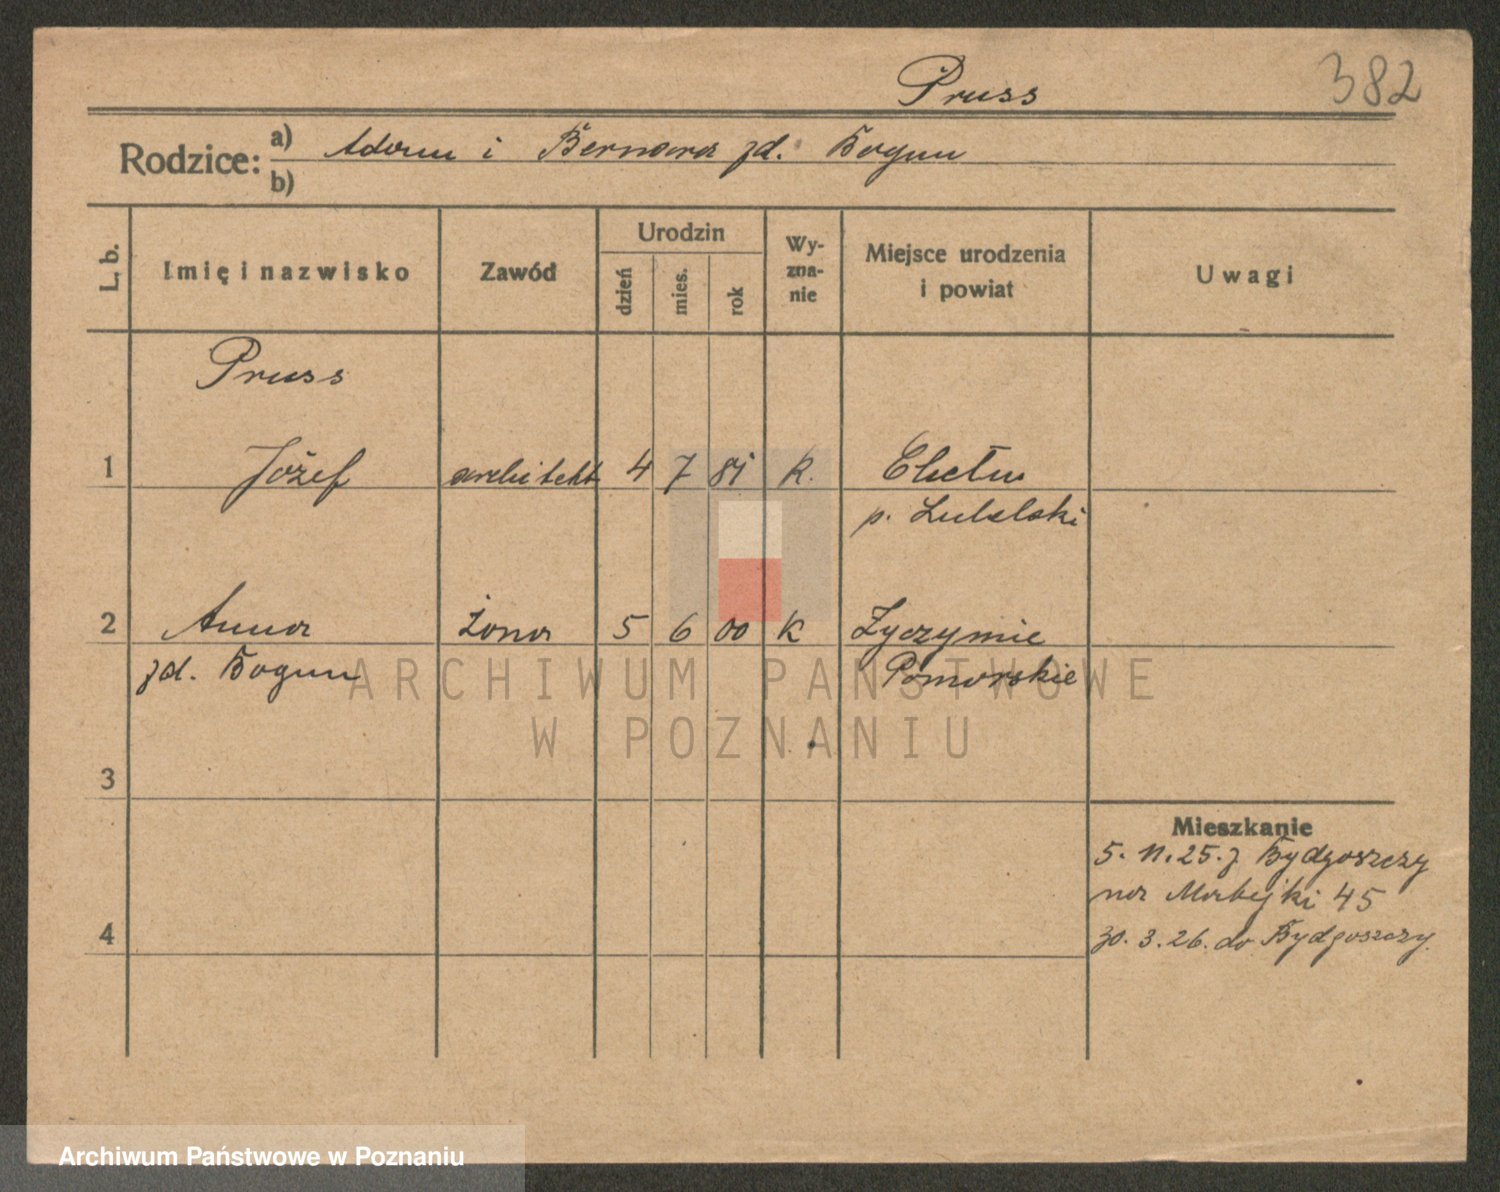 Pruss
382
Rodzice: a) Adam i Bernara zd. Bogun
b)
L. b.
Imię i nazwisko
Zawód
Urodzin
dzień
mies.
rok
Wy-
zna-
nie
Miejsce urodzenia
i powiat
Uwagi
Pruss
1 Józef architekt 4 7 81 R. Chełm
p. Lubelski
2 Anna żona 5 6 00 K Zyczymie
zd. Bogun Pomorskie
ARCHIWUM PAŃSTWOWE
W POZNANIU
3
Mieszkanie
5. 11. 25. z Bydgoszczy
na Matejki 45
4
30. 3. 26. do Bydgoszczy.
Archiwum Państwowe w Poznaniu